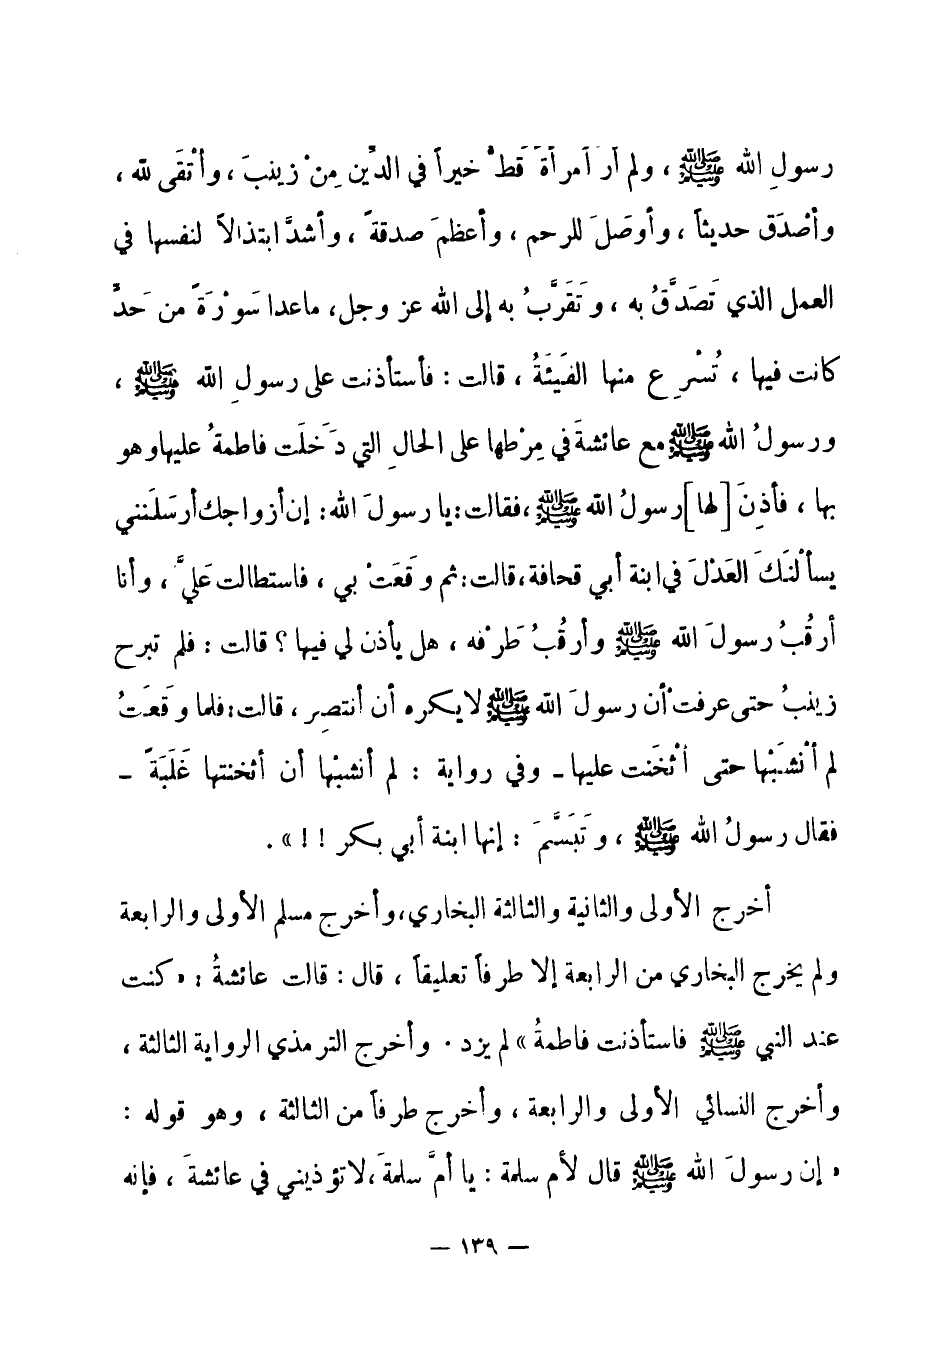 رسولِ الله ﷺ ، ولم أرَ امرأةً قَطُّ خيراً في الدِّين مِنْ زينبَ ، وأتْقَى لله ،
وأصْدَق حديثاً ، وأوصَلَ للرحم ، وأعظمَ صدقةً ، وأشدَّ ابتذالاً لنفسها في
العمل الذي تَصَدَّقُ به ، وتَقَرَّبُ به إلى الله عز وجل، ماعدا سَوْرَةً من حَدٍّ
كانت فيها ، تُسْرِع منها الفَيَئَةُ ، قالت : فأستأذنت على رسولِ الله ﷺ ،
ورسولُ الله ﷺ مع عائشةَ في مِرْطها على الحالِ التي دَخلَت فاطمةُ عليها وهو
بها ، فأذِنَ [لها] رسولُ الله ﷺ ،فقالت: يا رسولَ الله: إن أزواجك أرسَلنني
يسألْنَكَ العَدْلَ في ابنة أبي قحافة ،قالت: ثم وقَعَتْ بي ، فاستطالت عَليَّ ، وأنا
أرقُبُ رسولَ الله ﷺ وأرقُبُ طَرْفه ، هل يأذن لي فيها ؟ قالت : فلم تبرح
زينبُ حتى عرفتْ أن رسولَ الله ﷺ لا يكره أن أنتصِر ، قالت: فلما وقَعَتُ
لم أنْشَبْها حتى أثْخَنت عليها ـ وفي رواية : لم أنشبْها أن أثخنتها غَلَبَةً ـ
فقال رسولُ الله ﷺ ، وتَبَسَّمَ : إنها ابنة أبي بكر ! ! » .
أخرج الأولى والثانية والثالثة البخاري ،وأخرج مسلم الأولى والرابعة
ولم يخرج البخاري من الرابعة إلا طرفاً تعليقاً ، قال : قالت عائشةُ : « كنت
عند النبي ﷺ فاستأذنت فاطمةُ » لم يزد . وأخرج الترمذي الرواية الثالثة ،
وأخرج النسائي الأولى والرابعة ، وأخرج طرفاً من الثالثة ، وهو قوله :
« إن رسولَ الله ﷺ قال لأم سلمة : يا أمَّ سلمةَ ،لا تؤذيني في عائشةَ ، فإنه
— ١٣٩ —